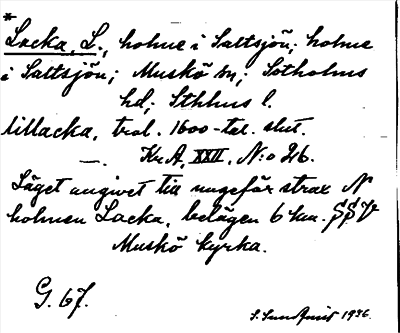 *
Lacka, L., holme i Saltsjön; holme
i Saltsjön; Muskö sn; Sotholms
hd; Sthlms l.
lillacka, trol. 1600-tal. slut.
—. Kr.A, XXII, N:o 26.
Läget angivet till ungefär strax N
holmen Lacka, belägen 6 km. SSV
Muskö kyrka.
G. 67.
S. Sundqvist 1936.